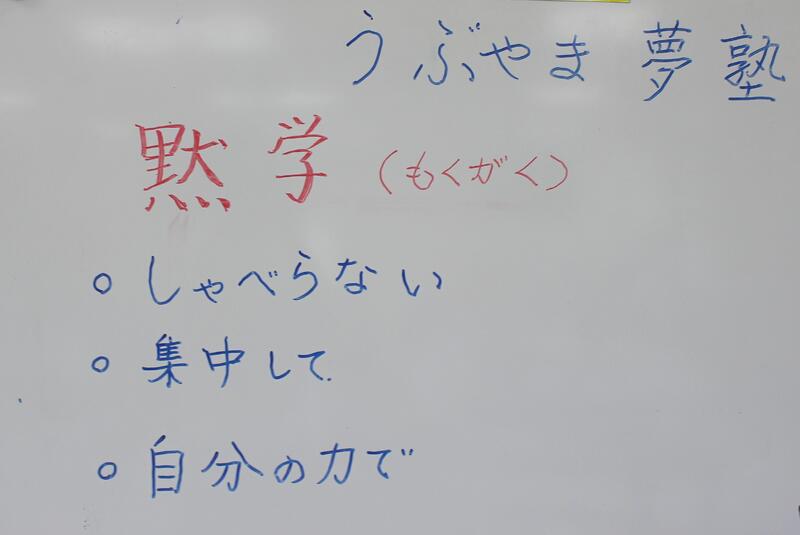 うぶやま夢塾
黙学（もくがく）
○ しゃべらない
○ 集中して
○ 自分の力で